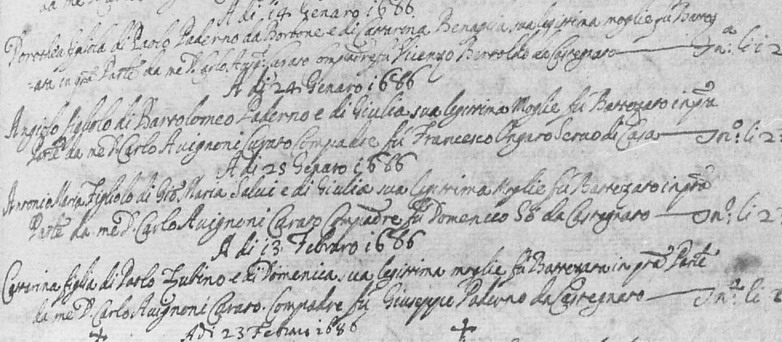 A di 14 Genaro 1686
Dorothea figlia di Paolo Paderno da Borbone e di Catarina Benaglia sua legitima moglie fu Battez
zata in pra Parte da me D. Carlo Auignoni Curato compadre fu Vicenzo Bertoldo da Castegnaro
A di 24 Genaro 1686
Angiolo figliolo di Bartolomeo Paderno e di Giulia sua legitima Moglie fu Battezato in pra
Parte da me D. Carlo Auignoni Curato Compadre fu Francesco Ongaro Seruo di Casa
A di 25 Genaro 1686
Antonio Maria figliolo di Gio: Maria Salui e di Giulia sua legitima Moglie fu Battezato in pra
Parte da me D. Carlo Auignoni Curato Compadre fu Domenico da Castegnaro
A di 13 Febraro 1686
Catterina figlia di Paolo Zubino e di Domenica sua legitima moglie fu Battezata in pra Parte
da me D. Carlo Auignoni Curato. Compadre fu Giuseppe Paderno da Castegnaro
A di 23 Febraro 1686